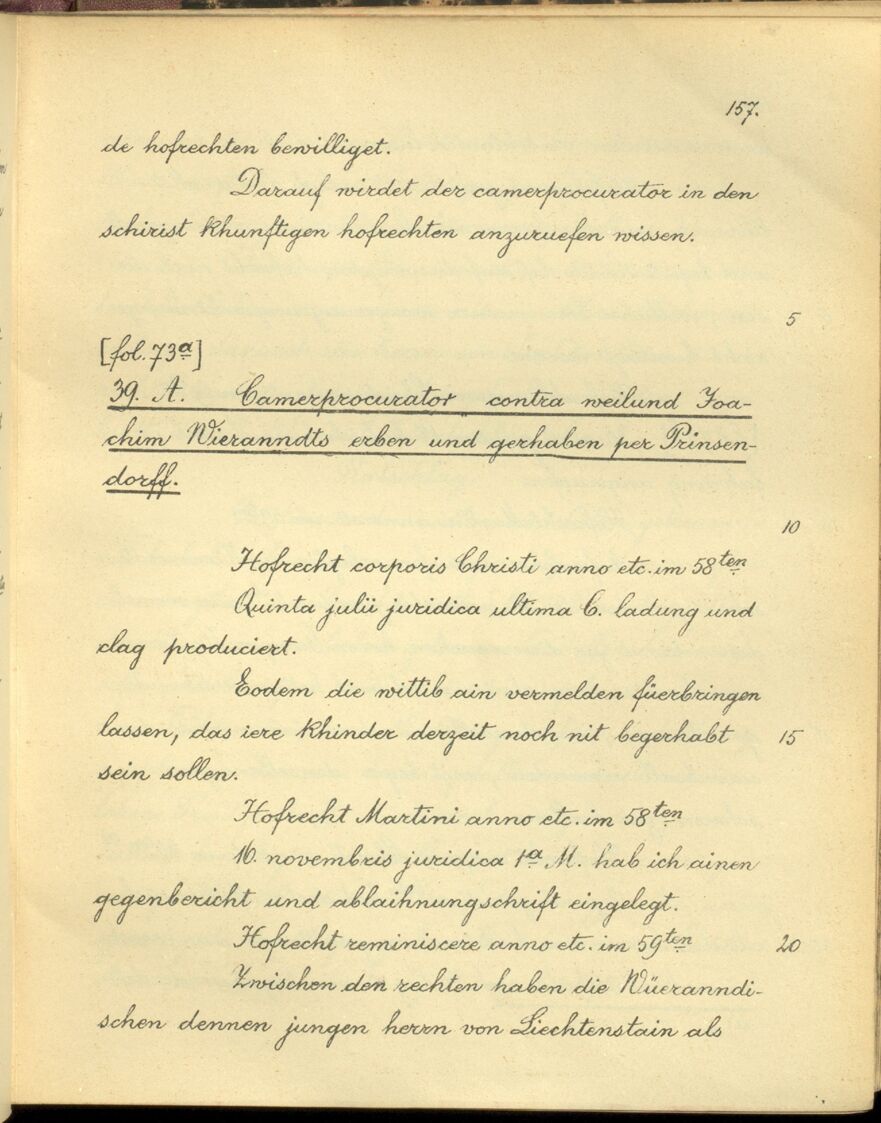 157.
de hofrechten bewilliget.
Darauf wirdet der camerprocurator in den
schirist khunftigen hofrechten anzuruefen wissen.
5
[fol. 73ª]
39. A. Camerprocurator contra weilund Joa-
chim Wieranndts erben und gerhaben per Prinsen-
dorff.
10
Hofrecht corporis Christi anno etc. im 58ten
Quinta julii juridica ultima C. ladung und
clag produciert.
Eodem die wittib ain vermelden füerbringen
lassen, das iere khinder derzeit noch nit begerhabt 15
sein sollen.
Hofrecht Martini anno etc. im 58ten
16. novembris juridica 1ª M. hab ich ainen
gegenbericht und ablaihnungschrift eingelegt.
Hofrecht reminiscere anno etc. im 59ten 20
Zwischen den rechten haben die Wüeranndi-
schen dennen jungen herrn von Liechtenstain als